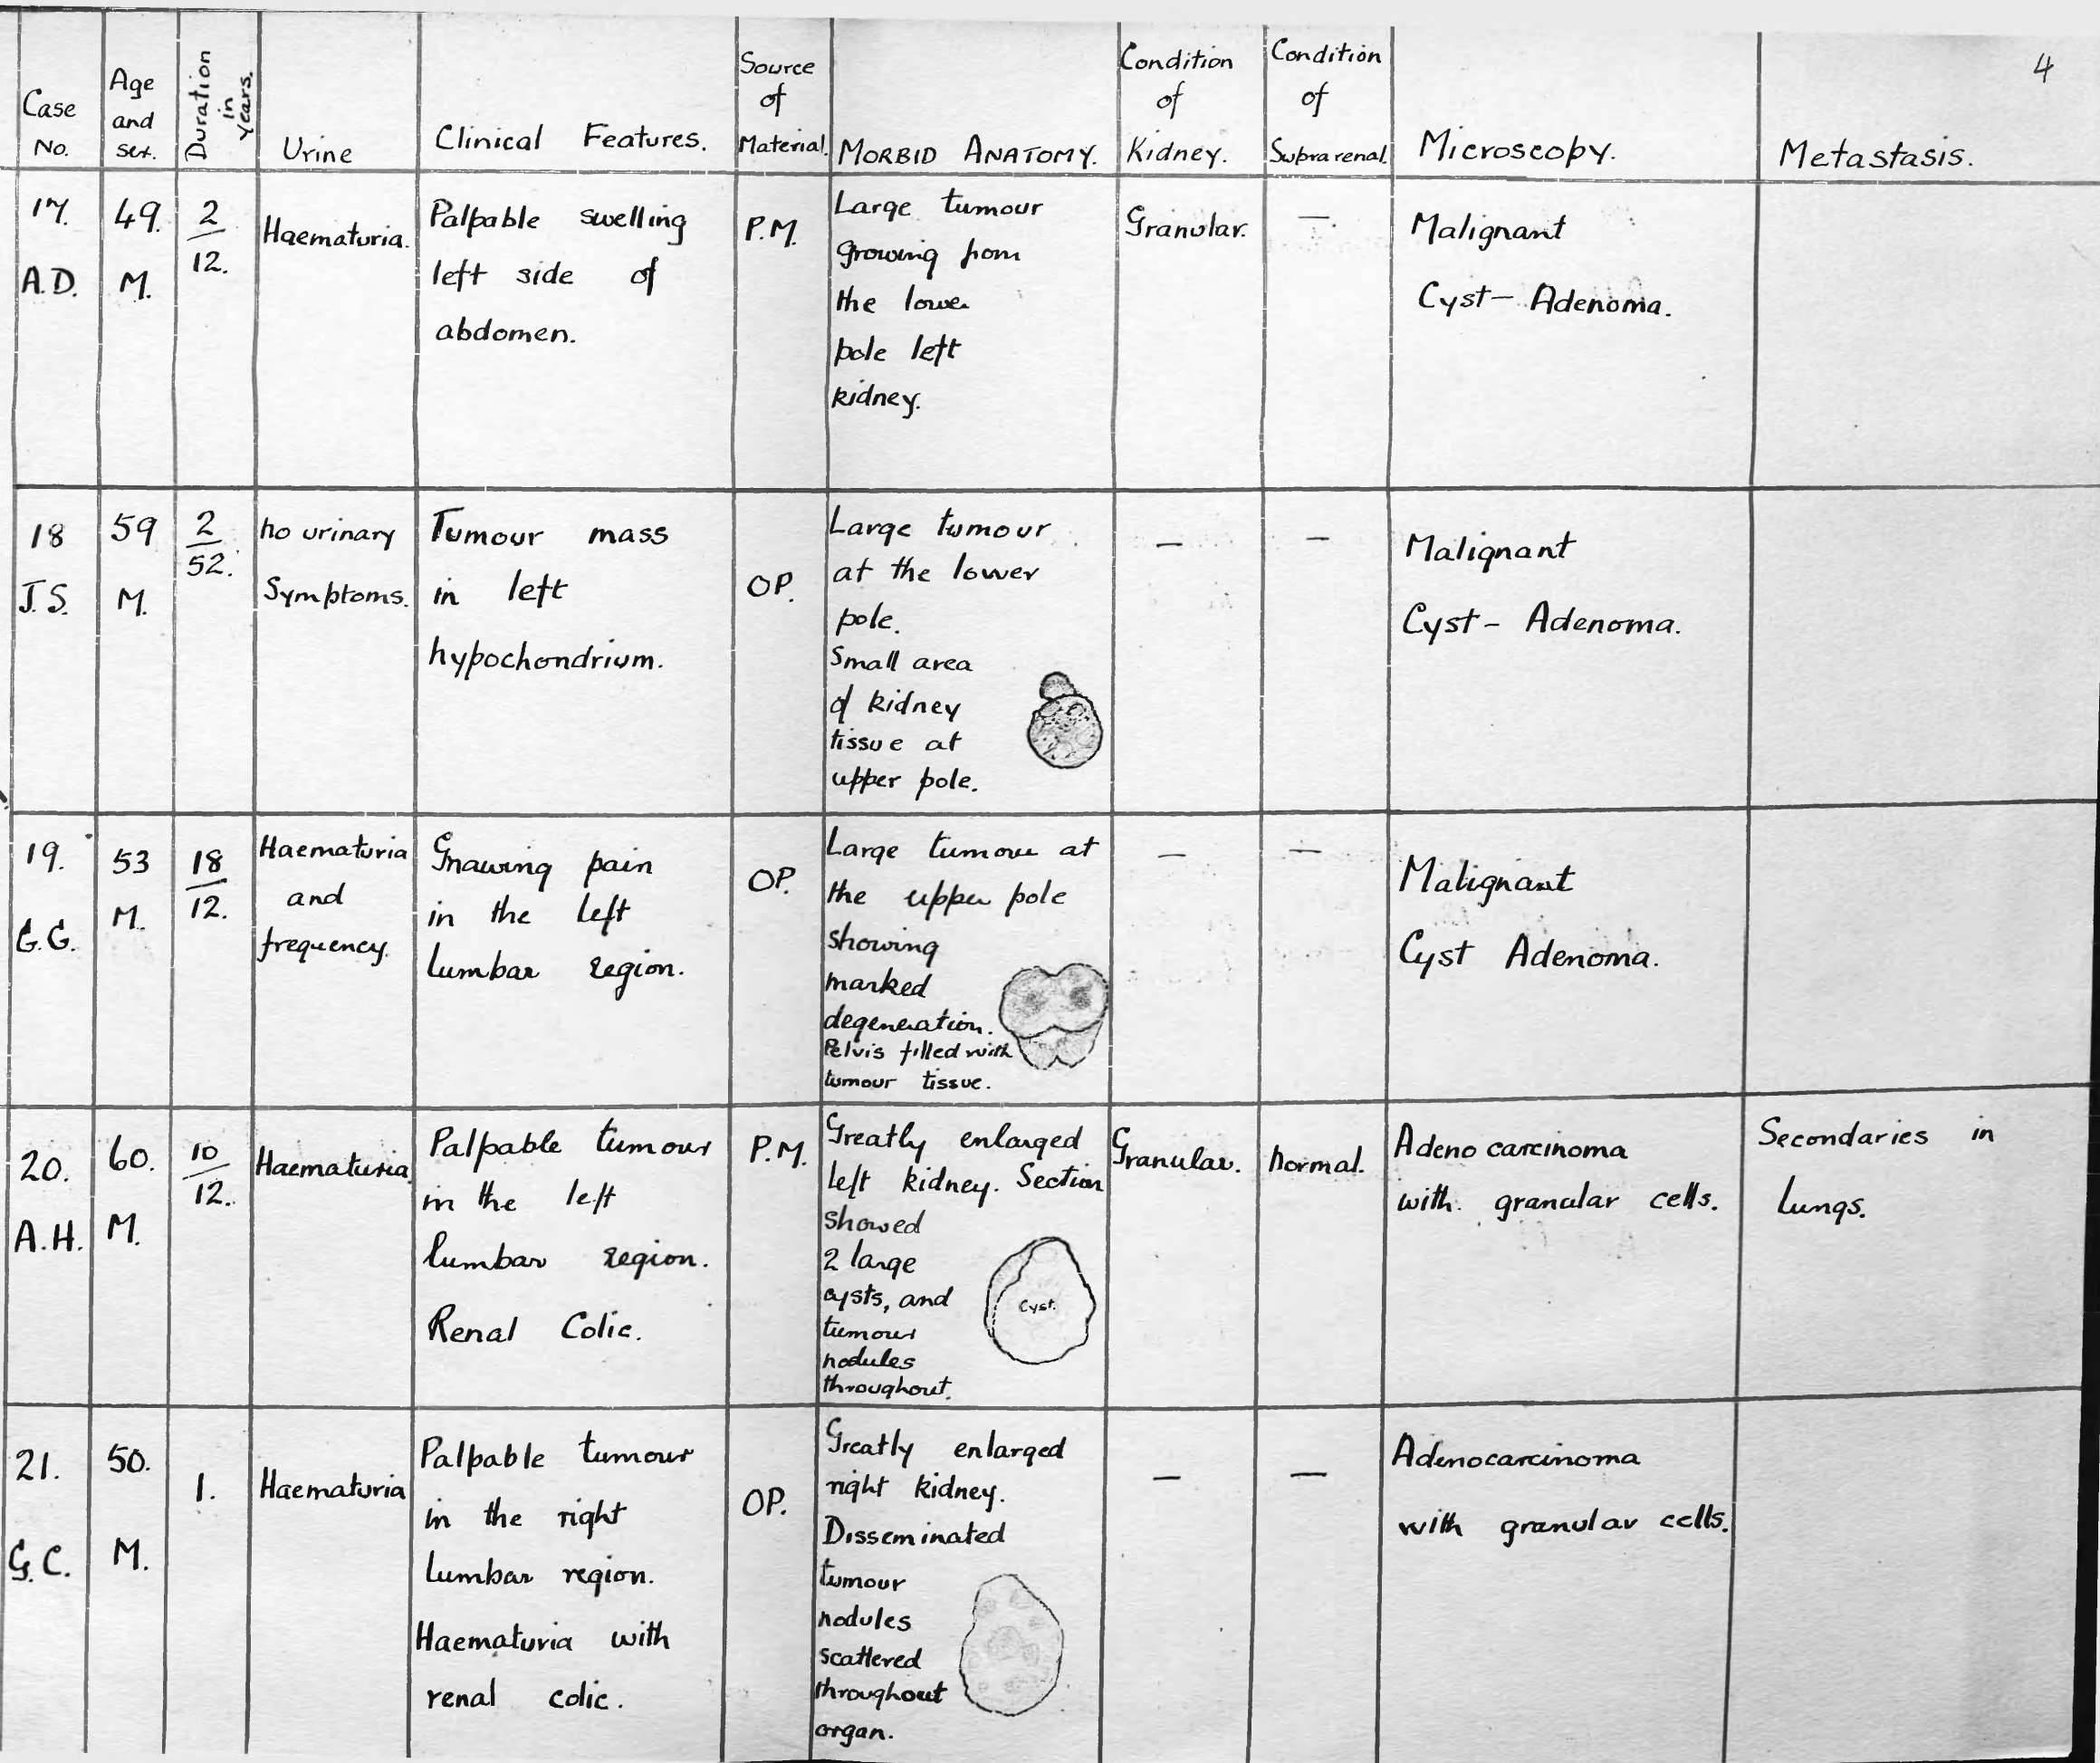 4
Case
No.
Age
and
sex.
Duration
in
Years.
Urine
Clinical Features.
Source
of
Material.
MORBID ANATOMY.
Condition
of
Kidney.
Condition
of
Suprarenal.
Microscopy.
Metastasis.
17.
A.D.
49.
M.
2
12.
Haematuria.
Palpable swelling
left side of
abdomen.
P.M.
Large tumour
growing from
the lower
pole left
kidney.
Granular.
—
Malignant
Cyst- Adenoma.
18
J.S.
59
M.
2
52.
no urinary
Symptoms.
Tumour mass
in left
hypochondrium.
OP.
Large tumour
at the lower
pole.
Small area
of kidney
tissue at
upper pole.
—
—
Malignant
Cyst- Adenoma.
19.
G.G.
53
M.
18
12.
Haematuria
and
frequency.
Gnawing pain
in the left
lumbar region.
OP.
Large tumour at
the upper pole
showing
marked
degeneration.
Pelvis filled with
tumour tissue.
—
—
Malignant
Cyst Adenoma.
20.
A.H.
60.
M.
10
12.
Haematuria.
Palpable tumour
in the left
lumbar region.
Renal Colic.
P.M.
Greatly enlarged
left kidney. Section
showed
2 large
cysts, and
tumour
nodules
throughout.
Cyst.
Granular.
normal.
Adeno carcinoma
with granular cells.
Secondaries in
lungs.
21.
G.C.
50.
M.
1.
Haematuria
Palpable tumour
in the right
lumbar region.
Haematuria with
renal colic.
OP.
Greatly enlarged
right kidney.
Disseminated
tumour
nodules
scattered
throughout
organ.
—
—
Adenocarcinoma
with granular cells.